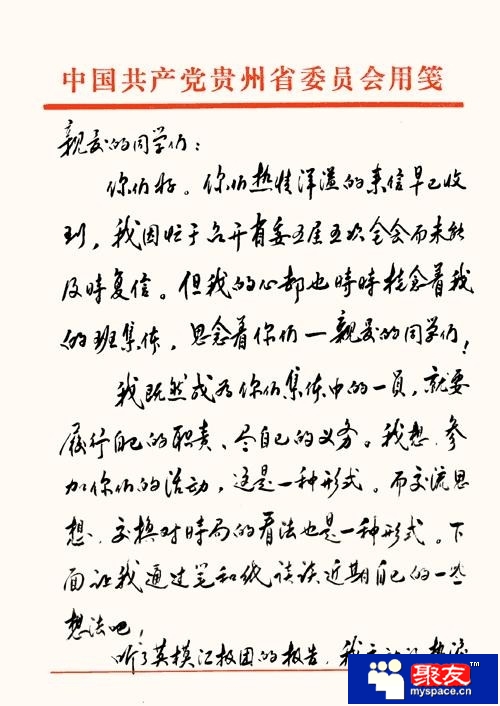 中国共产党贵州省委员会用笺
亲爱的同学们：
你们好。你们热情洋溢的来信早已收
到，我因忙于召开省委五届五次全会而未能
及時复信。但我的心却也時時挂念着我
的班集体，思念着你们—亲爱的同学们！
我既然成为你们集体中的一员，就要
履行自己的职责、尽自己的义务。我想，参
加你们的活动，这是一种形式。而交流思
想、交换对時局的看法也是一种形式。下
面让我通过笔和纸谈谈近期自己的一些
想法吧！
听了英模汇报团的报告，我
聚友™
myspace.cn